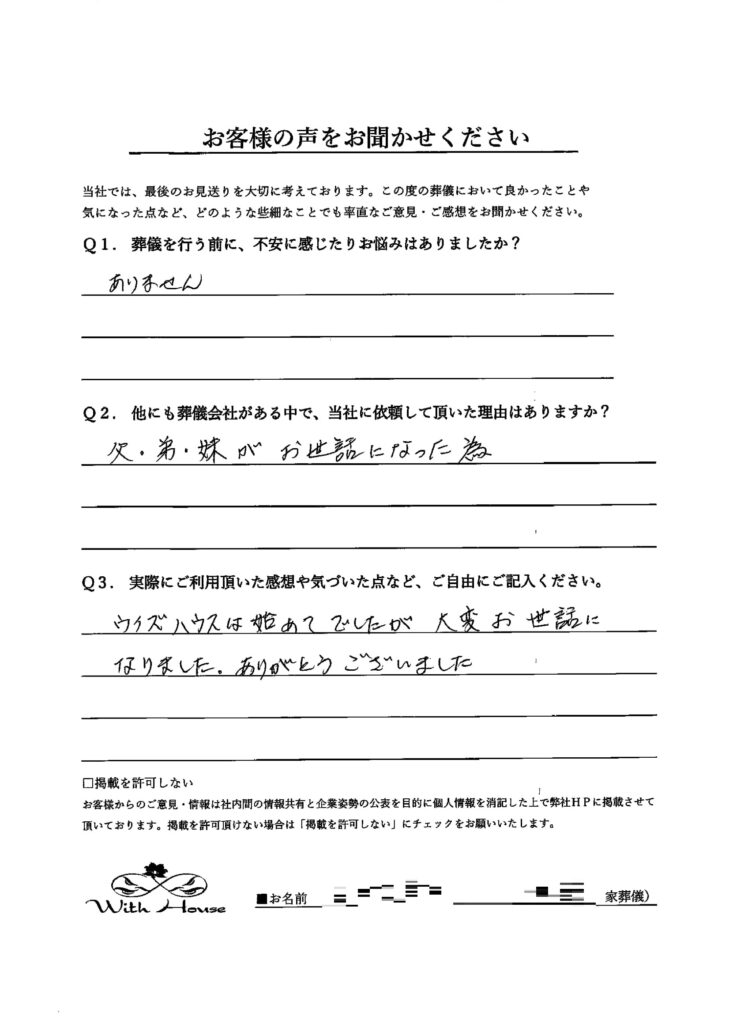 お客様の声をお聞かせください
当社では、最後のお見送りを大切に考えております。この度の葬儀において良かったことや
気になった点など、どのような些細なことでも率直なご意見・ご感想をお聞かせください。
Q1. 葬儀を行う前に、不安に感じたりお悩みはありましたか？
ありません
Q2. 他にも葬儀会社がある中で、当社に依頼して頂いた理由はありますか？
父・弟・妹が お世話になった為
Q3. 実際にご利用頂いた感想や気づいた点など、ご自由にご記入ください。
ウイズハウスは始めてでしたが 大変お世話に
なりました。ありがとうございました
□掲載を許可しない
お客様からのご意見・情報は社内間の情報共有と企業姿勢の公表を目的に個人情報を消記した上で弊社HPに掲載させて
頂いております。掲載を許可頂けない場合は「掲載を許可しない」にチェックをお願いいたします。
With House
■お名前 家葬儀）